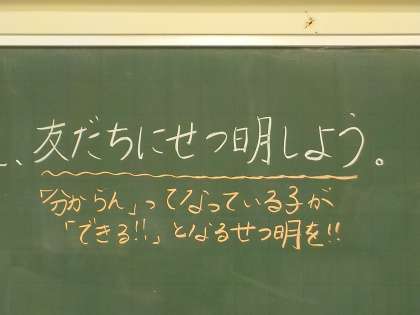 、友だちにせつ明しよう。
「分からん」ってなっている子が
「できる!!」となるせつ明を!!